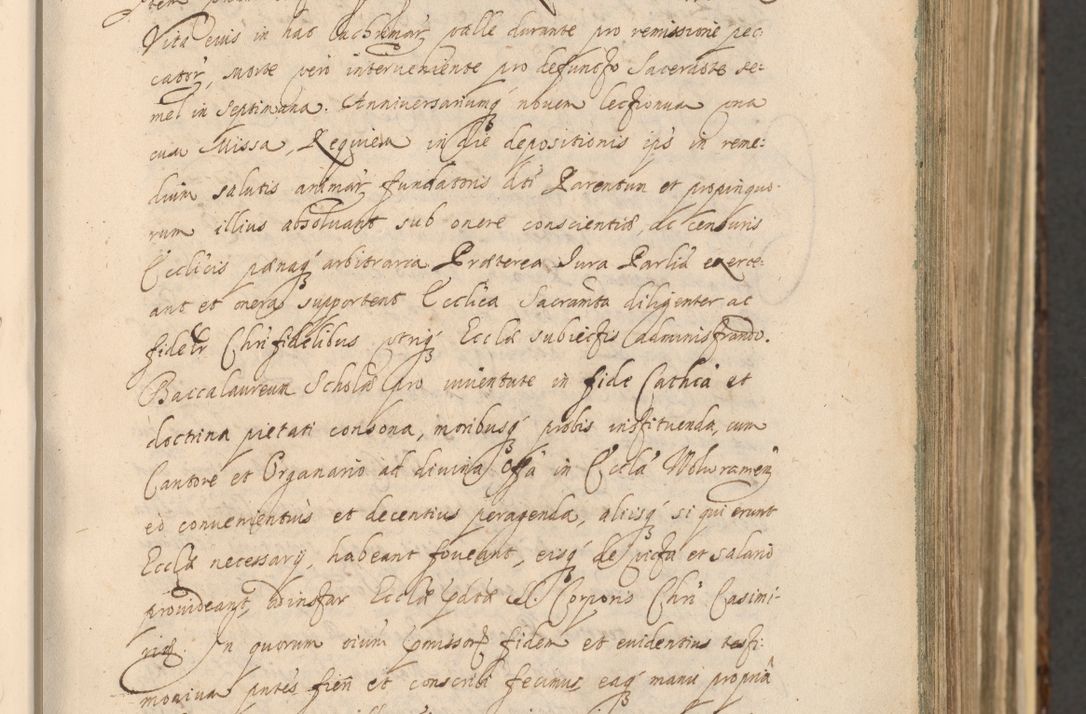 Vita eius in hac lachrimar, valle durante pro remissione pec-
cator, morte vero interveniente pro defuncto Sacerdote se-
mel in Septimana. Anniversariumq́ novem lectionum una
cum Missa, Requiem in die depositionis ips in reme-
dium salutis animar, fundatoris dti Parentum et propinquo-
rum illius absolvant sub onere conscientiæ, ac censuris
Ecclicis pænaq́ arbitraria. Præterea Iura Parlia exerce-
ant et onera supportent Ecclica Sacramta diligenter ac
fidelr Chrifidelibus utriq́ Ecclæ subiectis administrando.
Baccalaureum Scholæ pro iuventute in fide Cathca et
doctrina pietati consona, moribusq́ probis instituenda, cum
Cantore et Organario ad divina offa in Eccla
eo convenientius et decentius peragenda, aliisq́ si qui erunt
Ecclæ necessarij, habeant foveant, eisq́ de victu et salario
provideant, ad instar Ecclæ pdtæ S. Corporis Chri Casimi-
riæ. In quorum oium pmissor, fidem et evidentius testi-
monium pntes fieri et conscribi fecimus, easq́ manu propria